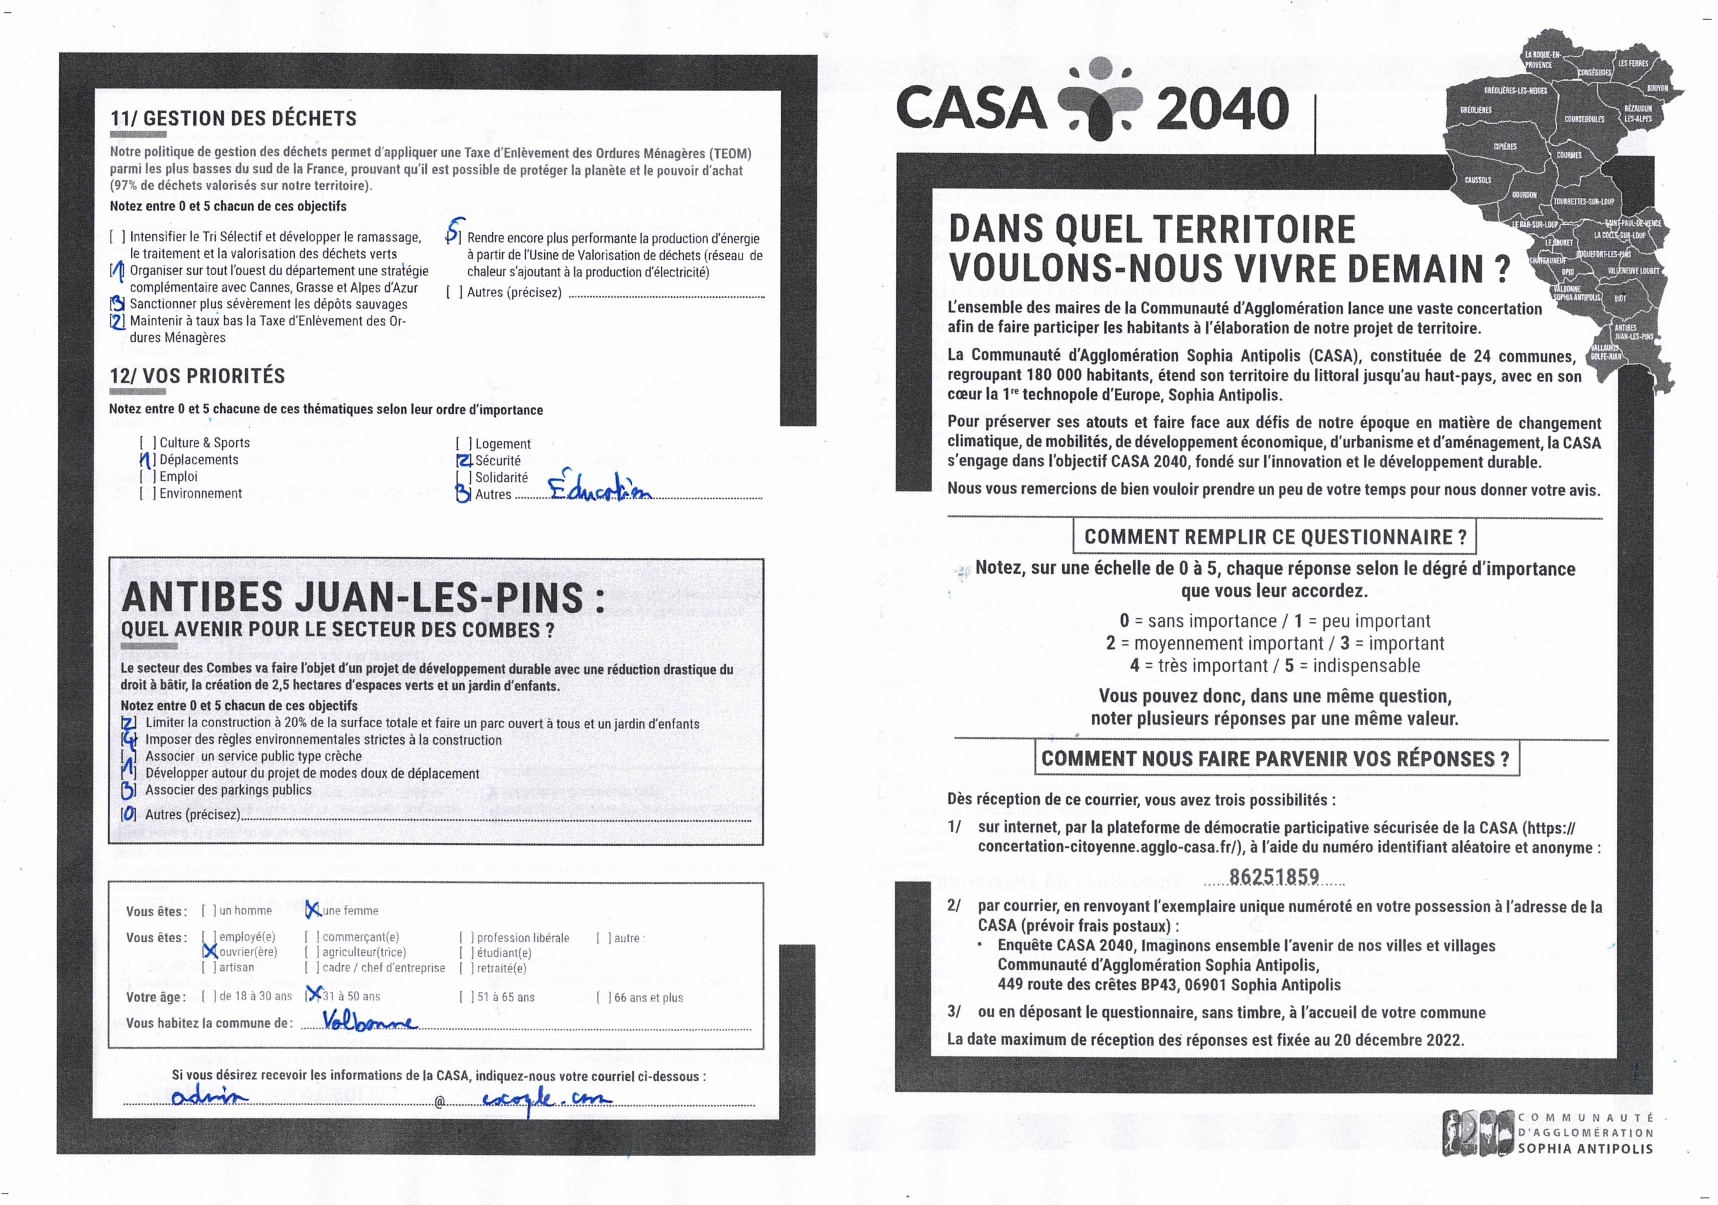 11/ GESTION DES DÉCHETS
Notre politique de gestion des déchets permet d'appliquer une Taxe d'Enlèvement des Ordures Ménagères (TEOM)
parmi les plus basses du sud de la France, prouvant qu'il est possible de protéger la planète et le pouvoir d'achat
(97% de déchets valorisés sur notre territoire).
Notez entre 0 et 5 chacun de ces objectifs
[ ] Intensifier le Tri Sélectif et développer le ramassage,
le traitement et la valorisation des déchets verts
[1] Organiser sur tout l'ouest du département une stratégie
complémentaire avec Cannes, Grasse et Alpes d'Azur
[3] Sanctionner plus sévèrement les dépôts sauvages
[2] Maintenir à taux bas la Taxe d'Enlèvement des Or-
dures Ménagères
[5] Rendre encore plus performante la production d'énergie
à partir de l'Usine de Valorisation de déchets (réseau de
chaleur s'ajoutant à la production d'électricité)
[ ] Autres (précisez)
12/ VOS PRIORITÉS
Notez entre 0 et 5 chacune de ces thématiques selon leur ordre d'importance
[ ] Culture & Sports
[1] Déplacements
[ ] Emploi
[ ] Environnement
[ ] Logement
[2] Sécurité
[ ] Solidarité
[3] Autres Éducation
ANTIBES JUAN-LES-PINS :
QUEL AVENIR POUR LE SECTEUR DES COMBES ?
Le secteur des Combes va faire l'objet d'un projet de développement durable avec une réduction drastique du
droit à bâtir, la création de 2,5 hectares d'espaces verts et un jardin d'enfants.
Notez entre 0 et 5 chacun de ces objectifs
[2] Limiter la construction à 20% de la surface totale et faire un parc ouvert à tous et un jardin d'enfants
[4] Imposer des règles environnementales strictes à la construction
[ ] Associer un service public type crèche
[1] Développer autour du projet de modes doux de déplacement
[3] Associer des parkings publics
[0] Autres (précisez)
Vous êtes : [ ] un homme [X] une femme
Vous êtes : [ ] employé(e) [ ] commerçant(e) [ ] profession libérale [ ] autre :
[X] ouvrier(ère) [ ] agriculteur(trice) [ ] étudiant(e)
[ ] artisan [ ] cadre / chef d'entreprise [ ] retraité(e)
Votre âge : [ ] de 18 à 30 ans [X] 31 à 50 ans [ ] 51 à 65 ans [ ] 66 ans et plus
Vous habitez la commune de : Valbonne
Si vous désirez recevoir les informations de la CASA, indiquez-nous votre courriel ci-dessous :
admin @ excogle.com
CASA 2040
LA ROQUE-EN-
PROVENCE
CONSÉGUDES
LES FERRES
BOUYON
GRÉOLIÈRES-LES-NEIGES
GRÉOLIÈRES
BÉZAUDUN
LES-ALPES
COURSEGOULES
CIPIÈRES
COURMES
CAUSSOLS
GOURDON
TOURRETTES-SUR-LOUP
LE BAR-SUR-LOUP
SAINT-PAUL-DE-VENCE
LA COLLE-SUR-LOUP
LE ROURET
ROQUEFORT-LES-PINS
CHÂTEAUNEUF
OPIO
VILLENEUVE LOUBET
VALBONNE
SOPHIA ANTIPOLIS
BIOT
ANTIBES
JUAN-LES-PINS
VALLAURIS
GOLFE-JUAN
DANS QUEL TERRITOIRE
VOULONS-NOUS VIVRE DEMAIN ?
L'ensemble des maires de la Communauté d'Agglomération lance une vaste concertation
afin de faire participer les habitants à l'élaboration de notre projet de territoire.
La Communauté d'Agglomération Sophia Antipolis (CASA), constituée de 24 communes,
regroupant 180 000 habitants, étend son territoire du littoral jusqu'au haut-pays, avec en son
cœur la 1re technopole d'Europe, Sophia Antipolis.
Pour préserver ses atouts et faire face aux défis de notre époque en matière de changement
climatique, de mobilités, de développement économique, d'urbanisme et d'aménagement, la CASA
s'engage dans l'objectif CASA 2040, fondé sur l'innovation et le développement durable.
Nous vous remercions de bien vouloir prendre un peu de votre temps pour nous donner votre avis.
COMMENT REMPLIR CE QUESTIONNAIRE ?
Notez, sur une échelle de 0 à 5, chaque réponse selon le dégré d'importance
que vous leur accordez.
0 = sans importance / 1 = peu important
2 = moyennement important / 3 = important
4 = très important / 5 = indispensable
Vous pouvez donc, dans une même question,
noter plusieurs réponses par une même valeur.
COMMENT NOUS FAIRE PARVENIR VOS RÉPONSES ?
Dès réception de ce courrier, vous avez trois possibilités :
1/ sur internet, par la plateforme de démocratie participative sécurisée de la CASA (https://
concertation-citoyenne.agglo-casa.fr/), à l'aide du numéro identifiant aléatoire et anonyme :
86251859
2/ par courrier, en renvoyant l'exemplaire unique numéroté en votre possession à l'adresse de la
CASA (prévoir frais postaux) :
• Enquête CASA 2040, Imaginons ensemble l'avenir de nos villes et villages
Communauté d'Agglomération Sophia Antipolis,
449 route des crêtes BP43, 06901 Sophia Antipolis
3/ ou en déposant le questionnaire, sans timbre, à l'accueil de votre commune
La date maximum de réception des réponses est fixée au 20 décembre 2022.
COMMUNAUTÉ
D'AGGLOMÉRATION
SOPHIA ANTIPOLIS